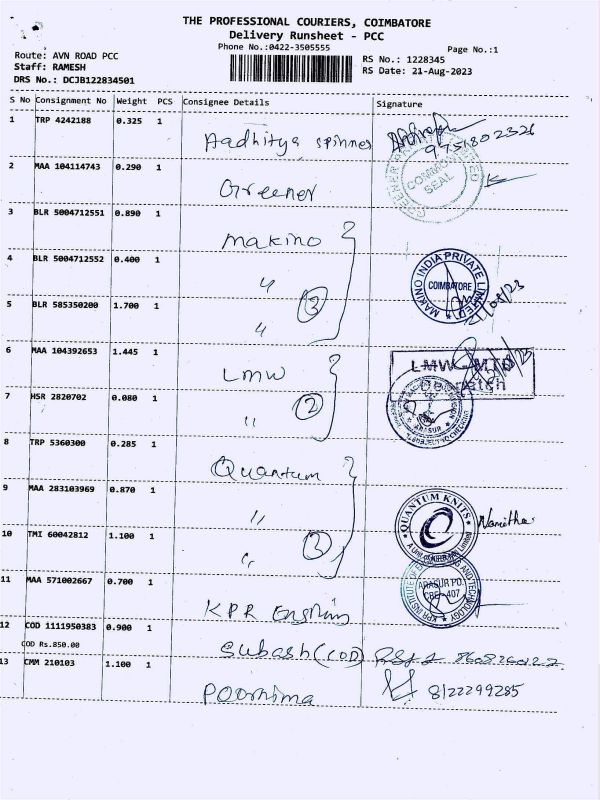 THE PROFESSIONAL COURIERS, COIMBATORE
Delivery Runsheet - PCC
Phone No.:0422-3505555
Page No.:1
Route: AVN ROAD PCC
Staff: RAMESH
DRS No.: DCJB122834501
RS No.: 1228345
RS Date: 21-Aug-2023
S No Consignment No Weight PCS Consignee Details Signature
1 TRP 4242188 0.325 1 Aadhitya spinners 9751802326
2 MAA 104114743 0.290 1 Greener COMMON SEAL
3 BLR 5004712551 0.890 1 Makino
4 BLR 5004712552 0.400 1 " MAKINO INDIA PRIVATE LIMITED COIMBATORE
5 BLR 585350200 1.700 1 " 3
6 MAA 104392653 1.445 1 LMW LMW - MTD
7 HSR 2820702 0.080 1 " 2
8 TRP 5360300 0.285 1 Quantum
9 MAA 283103969 0.870 1 " QUANTUM KNITS Namitha
10 TMI 60042812 1.100 1 " 3
11 MAA 571002667 0.700 1 KPR ARASUR PO. CBE-407
12 COD 1111950383 0.900 1 Subash (COD)
COD Rs.850.00
13 CMM 210103 1.100 1 Poornima 8122299285